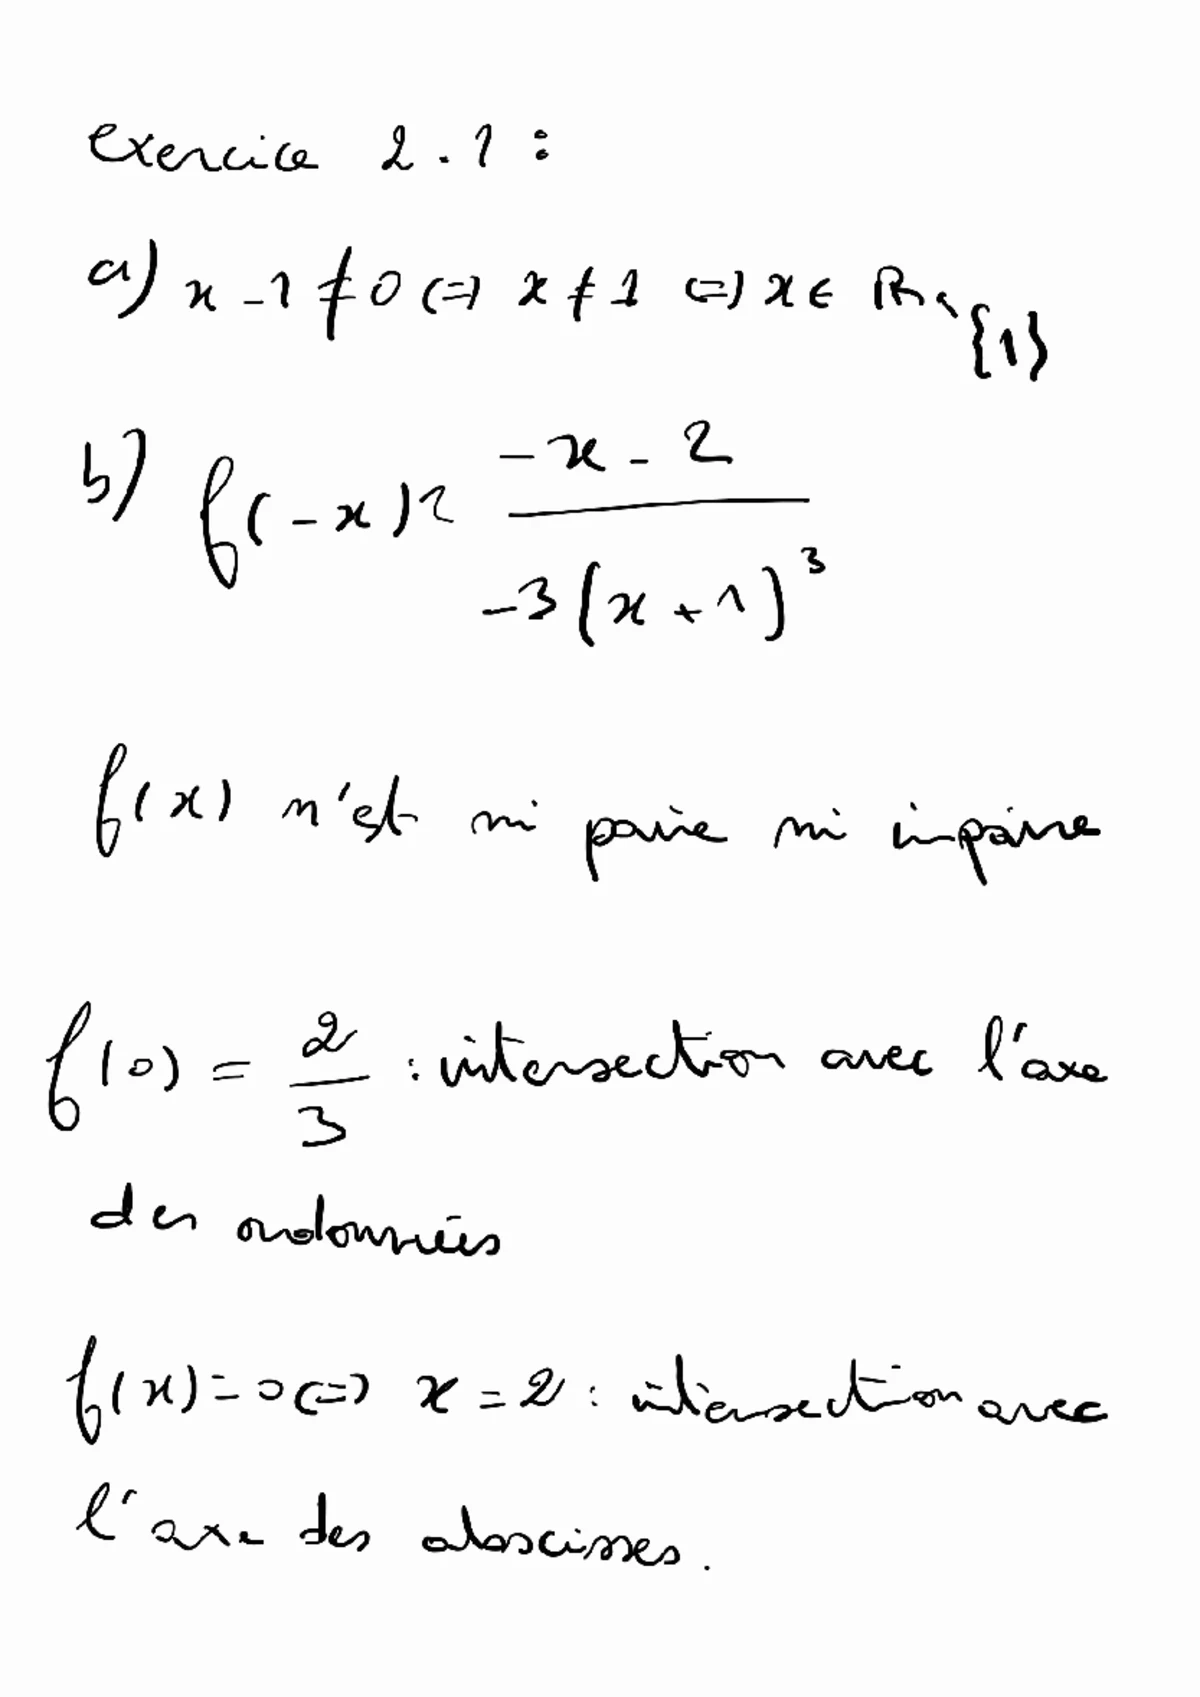 exercice 2.1 :
a) x - 1 ≠ 0 (=) x ≠ 1 (=) x ∈ ℝ \ {1}
b) f(-x) = \frac{-x - 2}{-3(x + 1)^3}
f(x) n'est ni paire ni impaire
f(0) = \frac{2}{3} : intersection avec l'axe
des ordonnées
f(x) = 0 (=) x = 2 : intersection avec
l'axe des abscisses.